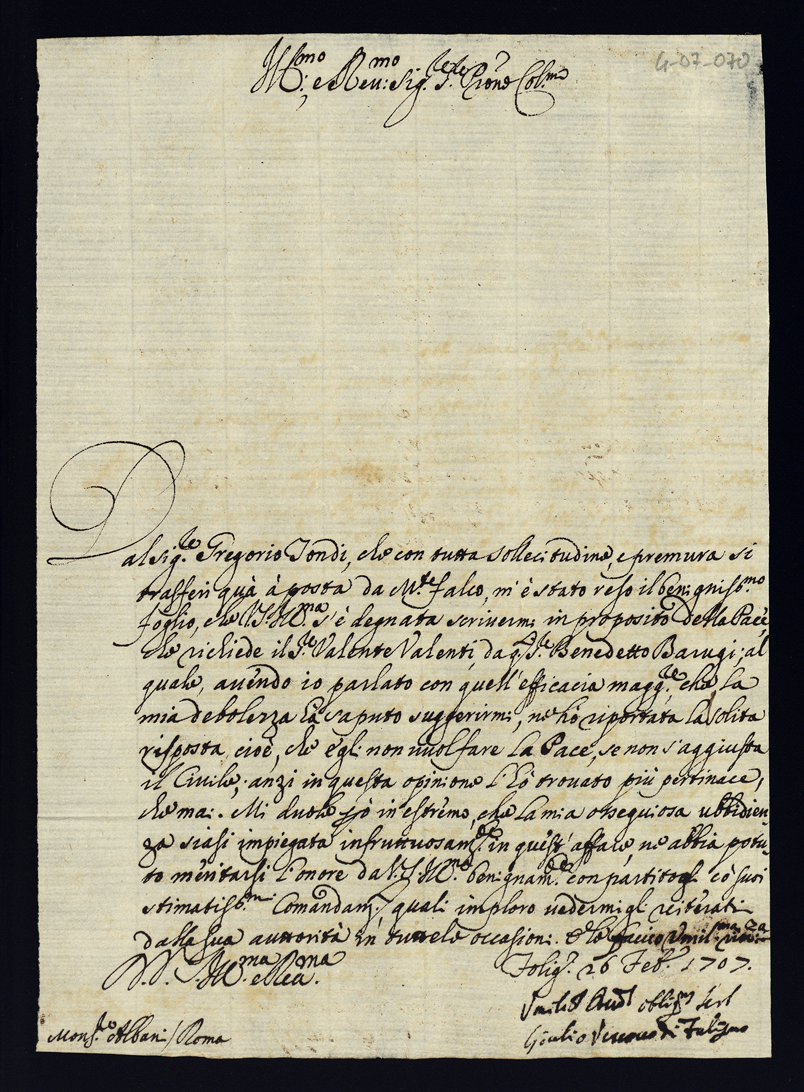 Ill.mo e Rev: Sig.re P.rone Col.mo
4-07-070
Dal Sig.re Gregorio Jondi, che con tutta sollecitudine, e premura si
trasferì quà à posta da M.te Falco, m'è stato reso il benigniss.mo
foglio, che V.S. Ill.ma s'è degnata scrivermi in proposito della Pace,
che richiede il S.re Valente Valenti, da q.sto S.re Benedetto Barugi; al
quale, avendo io parlato con quell'efficacia magg.re, che la
mia debolezza hà saputo suggerirmi, ne hò riportata la solita
risposta, cioè, che egli non vuol fare la Pace, se non s'aggiusta
il Civile; anzi in questa opinione l'hò trovato più pertinace,
che mai. Mi duole p.ciò in estremo, che la mia ossequiosa ubbidien-
za siasi impiegata infruttuosam.te in quest'affare, ne abbia potu-
to meritarsi l'onore da V.S. Ill.ma benignam.te compartitogli co' suoi
stimatiss.mi Comandam.ti, quali imploro vedermigli reiterati
dalla sua auttorità in tutte le occasioni. E le faccio umil.ma riv.za
D. V. S. Ill.ma e Rev.ma
Folig.o 26 Feb.o 1707.
Umilis.o Dev.o oblig.o Ser.
Giulio Vescovo di Fuligno
Mons.re Albani / Roma